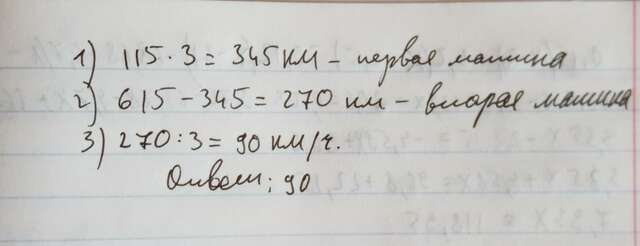 1) 115 · 3 = 345 км - первая машина
2) 615 - 345 = 270 км - вторая машина
3) 270 : 3 = 90 км/ч.
Ответ: 90